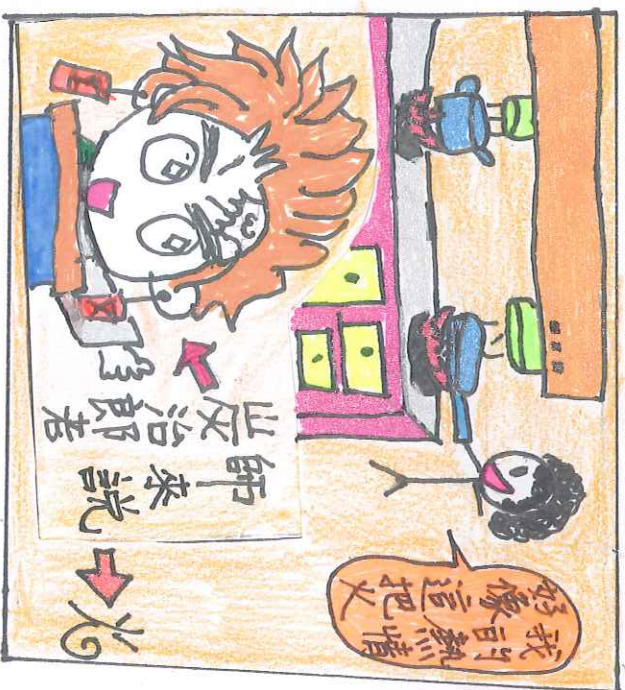 我的熱情
好像這把火
炭治郎老
師來說
火